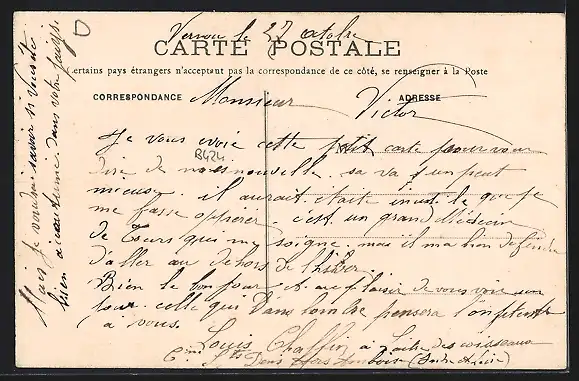 Vernou le 27 octobre
CARTE POSTALE
Certains pays étrangers n'acceptent pas la correspondance de ce côté, se renseigner à la Poste
CORRESPONDANCE
ADRESSE
Monsieur Victor
Je vous envoie cette petit carte pour vous
B424
dire de nos nouvelle. sa va un peut
mieuse. il aurait étaite inutile que je
me fasse opperer. c'est un grand Médecin
de Tours qui me soigne. mais il ma bien defendu
d'aller au dehors de l'hiver.
Bien le bonjour et au plaisir de vous voir un
jour. celle qui dans l'ombre pensera
a vous.
Louis Chaffin, a
St Denis Hors Amboise (Indre et Loire)
Mais je voudrai savoir si vous êtes
bien dans votre
D